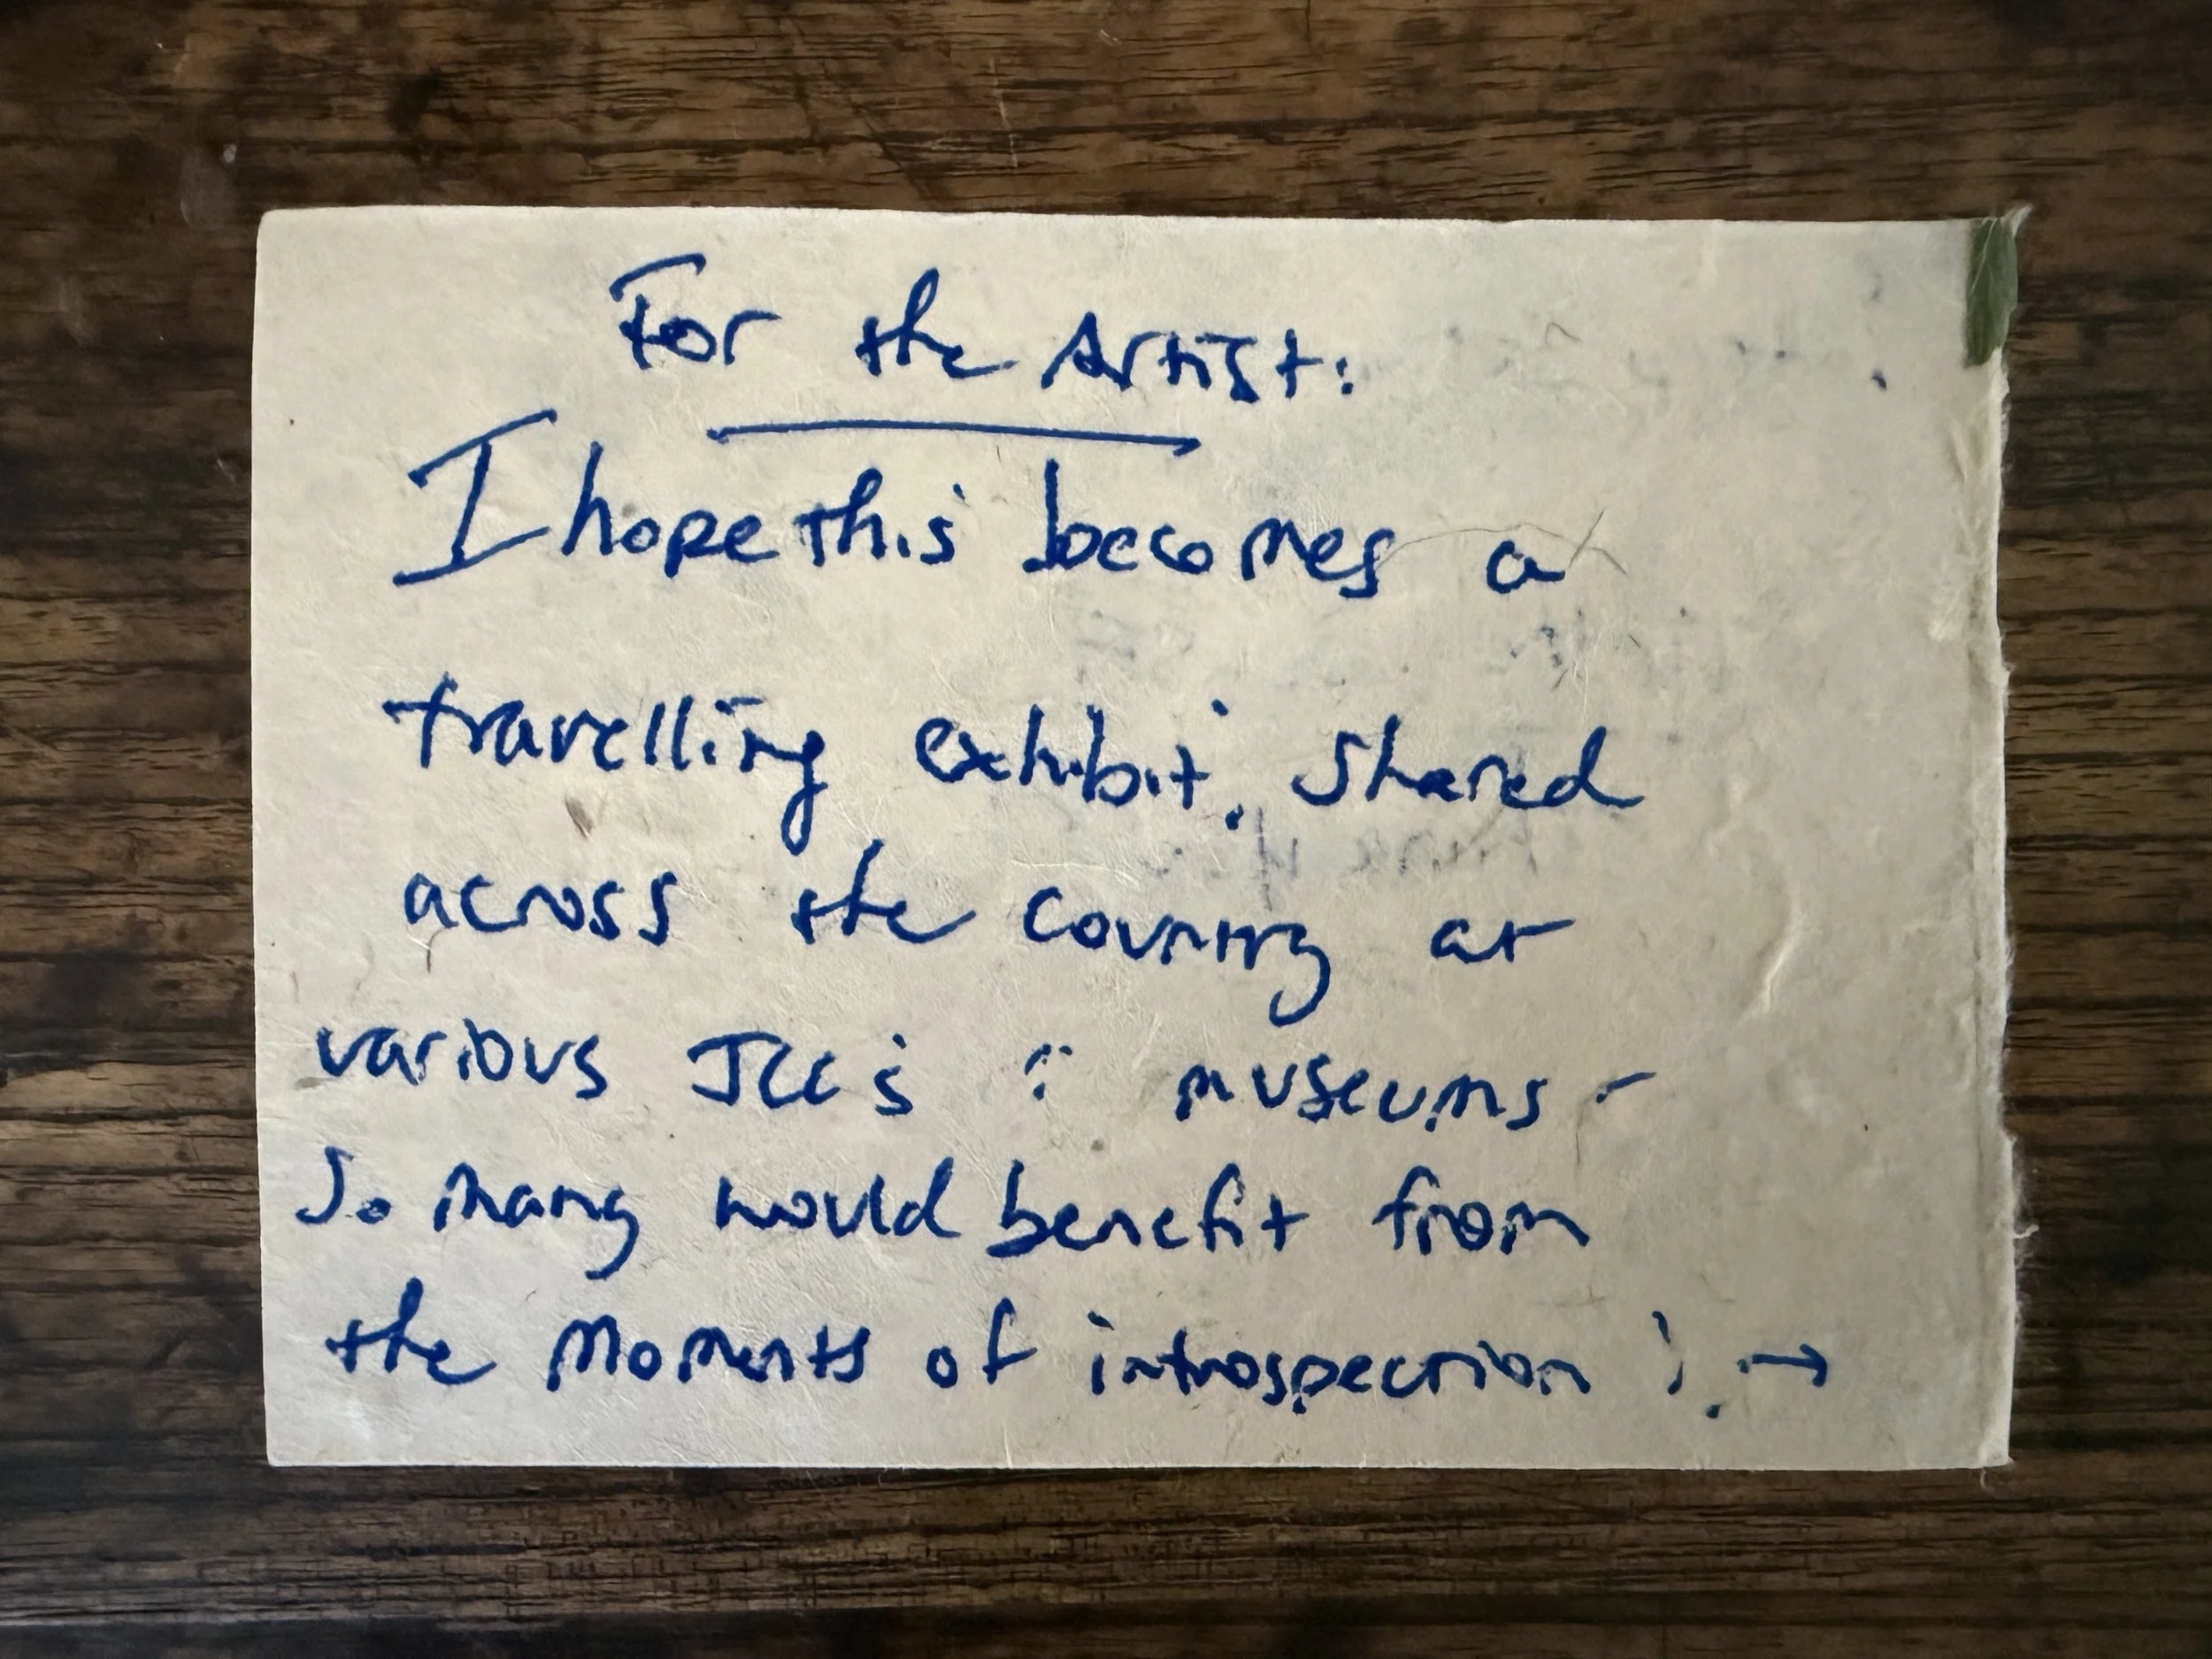 For the Artist:
I hope this becomes a
travelling exhibit, shared
across the country at
various JCC's & museums -
So many would benefit from
the moments of introspection ! →